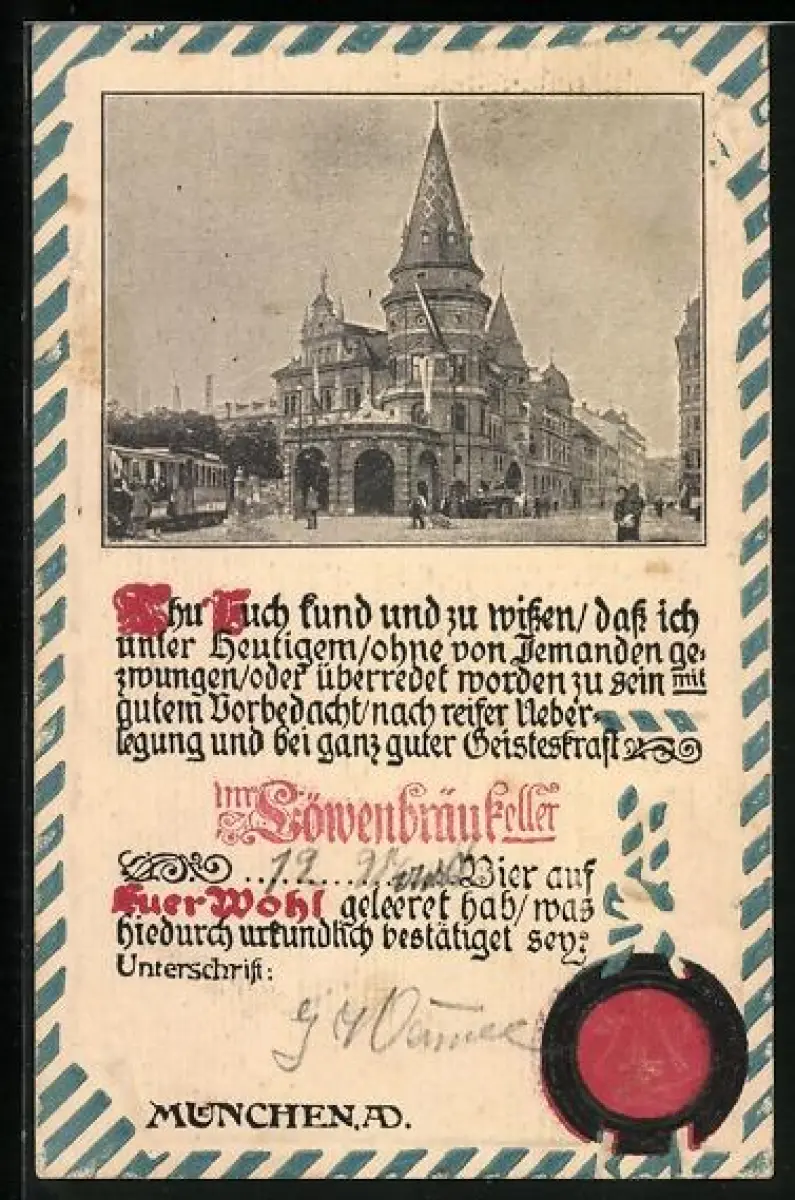 Thu Euch kund und zu wißen/ daß ich
unter Heutigem/ohne von Jemanden ge=
zwungen/oder überredet worden zu sein mit
gutem Vorbedacht/nach reifer Ueber=
legung und bei ganz guter Geisteskraft
im Löwenbräukeller
12 Bier auf
Euer Wohl geleeret hab/ was
hiedurch urkundlich bestätiget sey:
Unterschrift:
MÜNCHEN, AD.